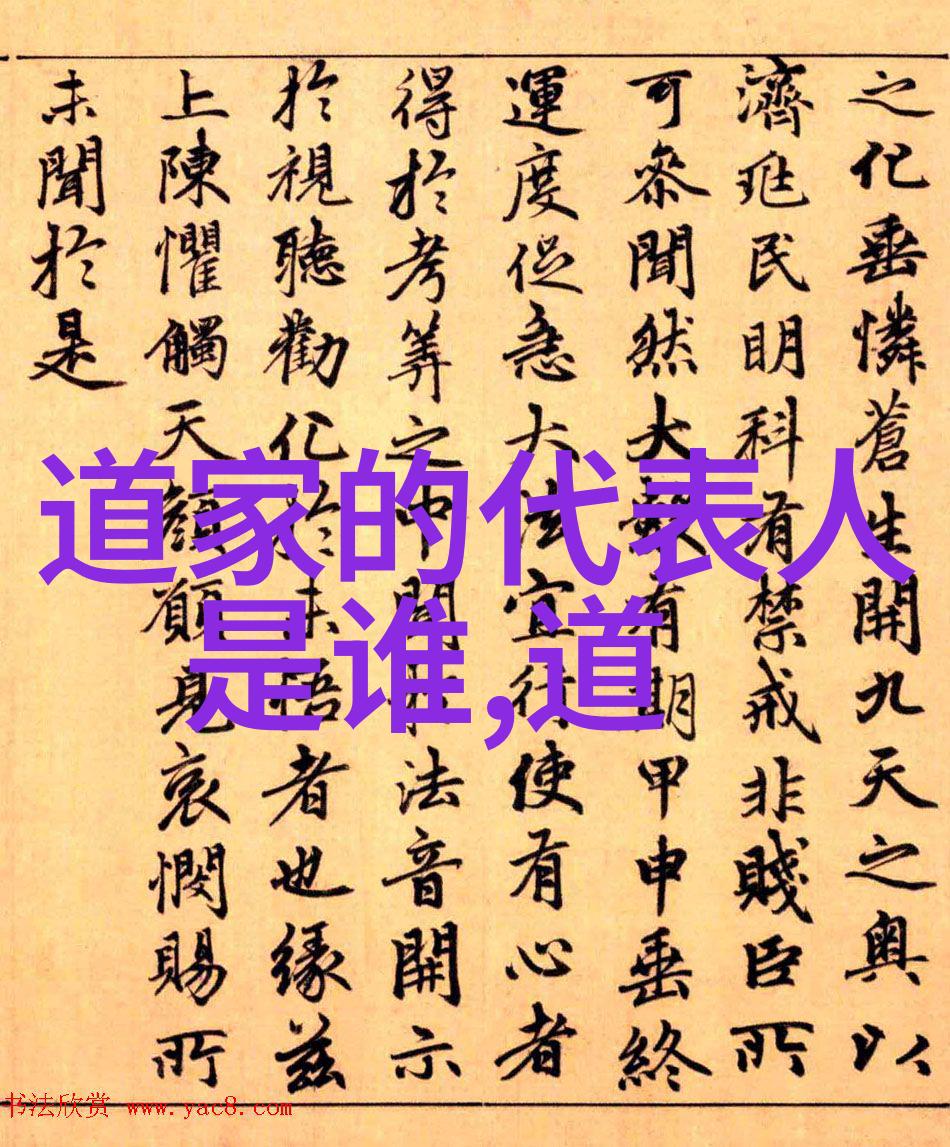 之化垂憐蒼生開九天之奧以
濟兆民明科有禁戒非賤臣所
可參聞然大數有期甲申垂終
運度促急大法宜行使有心者
得於考筭之中聞於法音開示
於視聽勸化於未悟者也緣茲
上陳懼觸天顏願見哀憫賜所
未聞於是
道家的代表人
是谁,道
书法欣赏 www.yac8.com